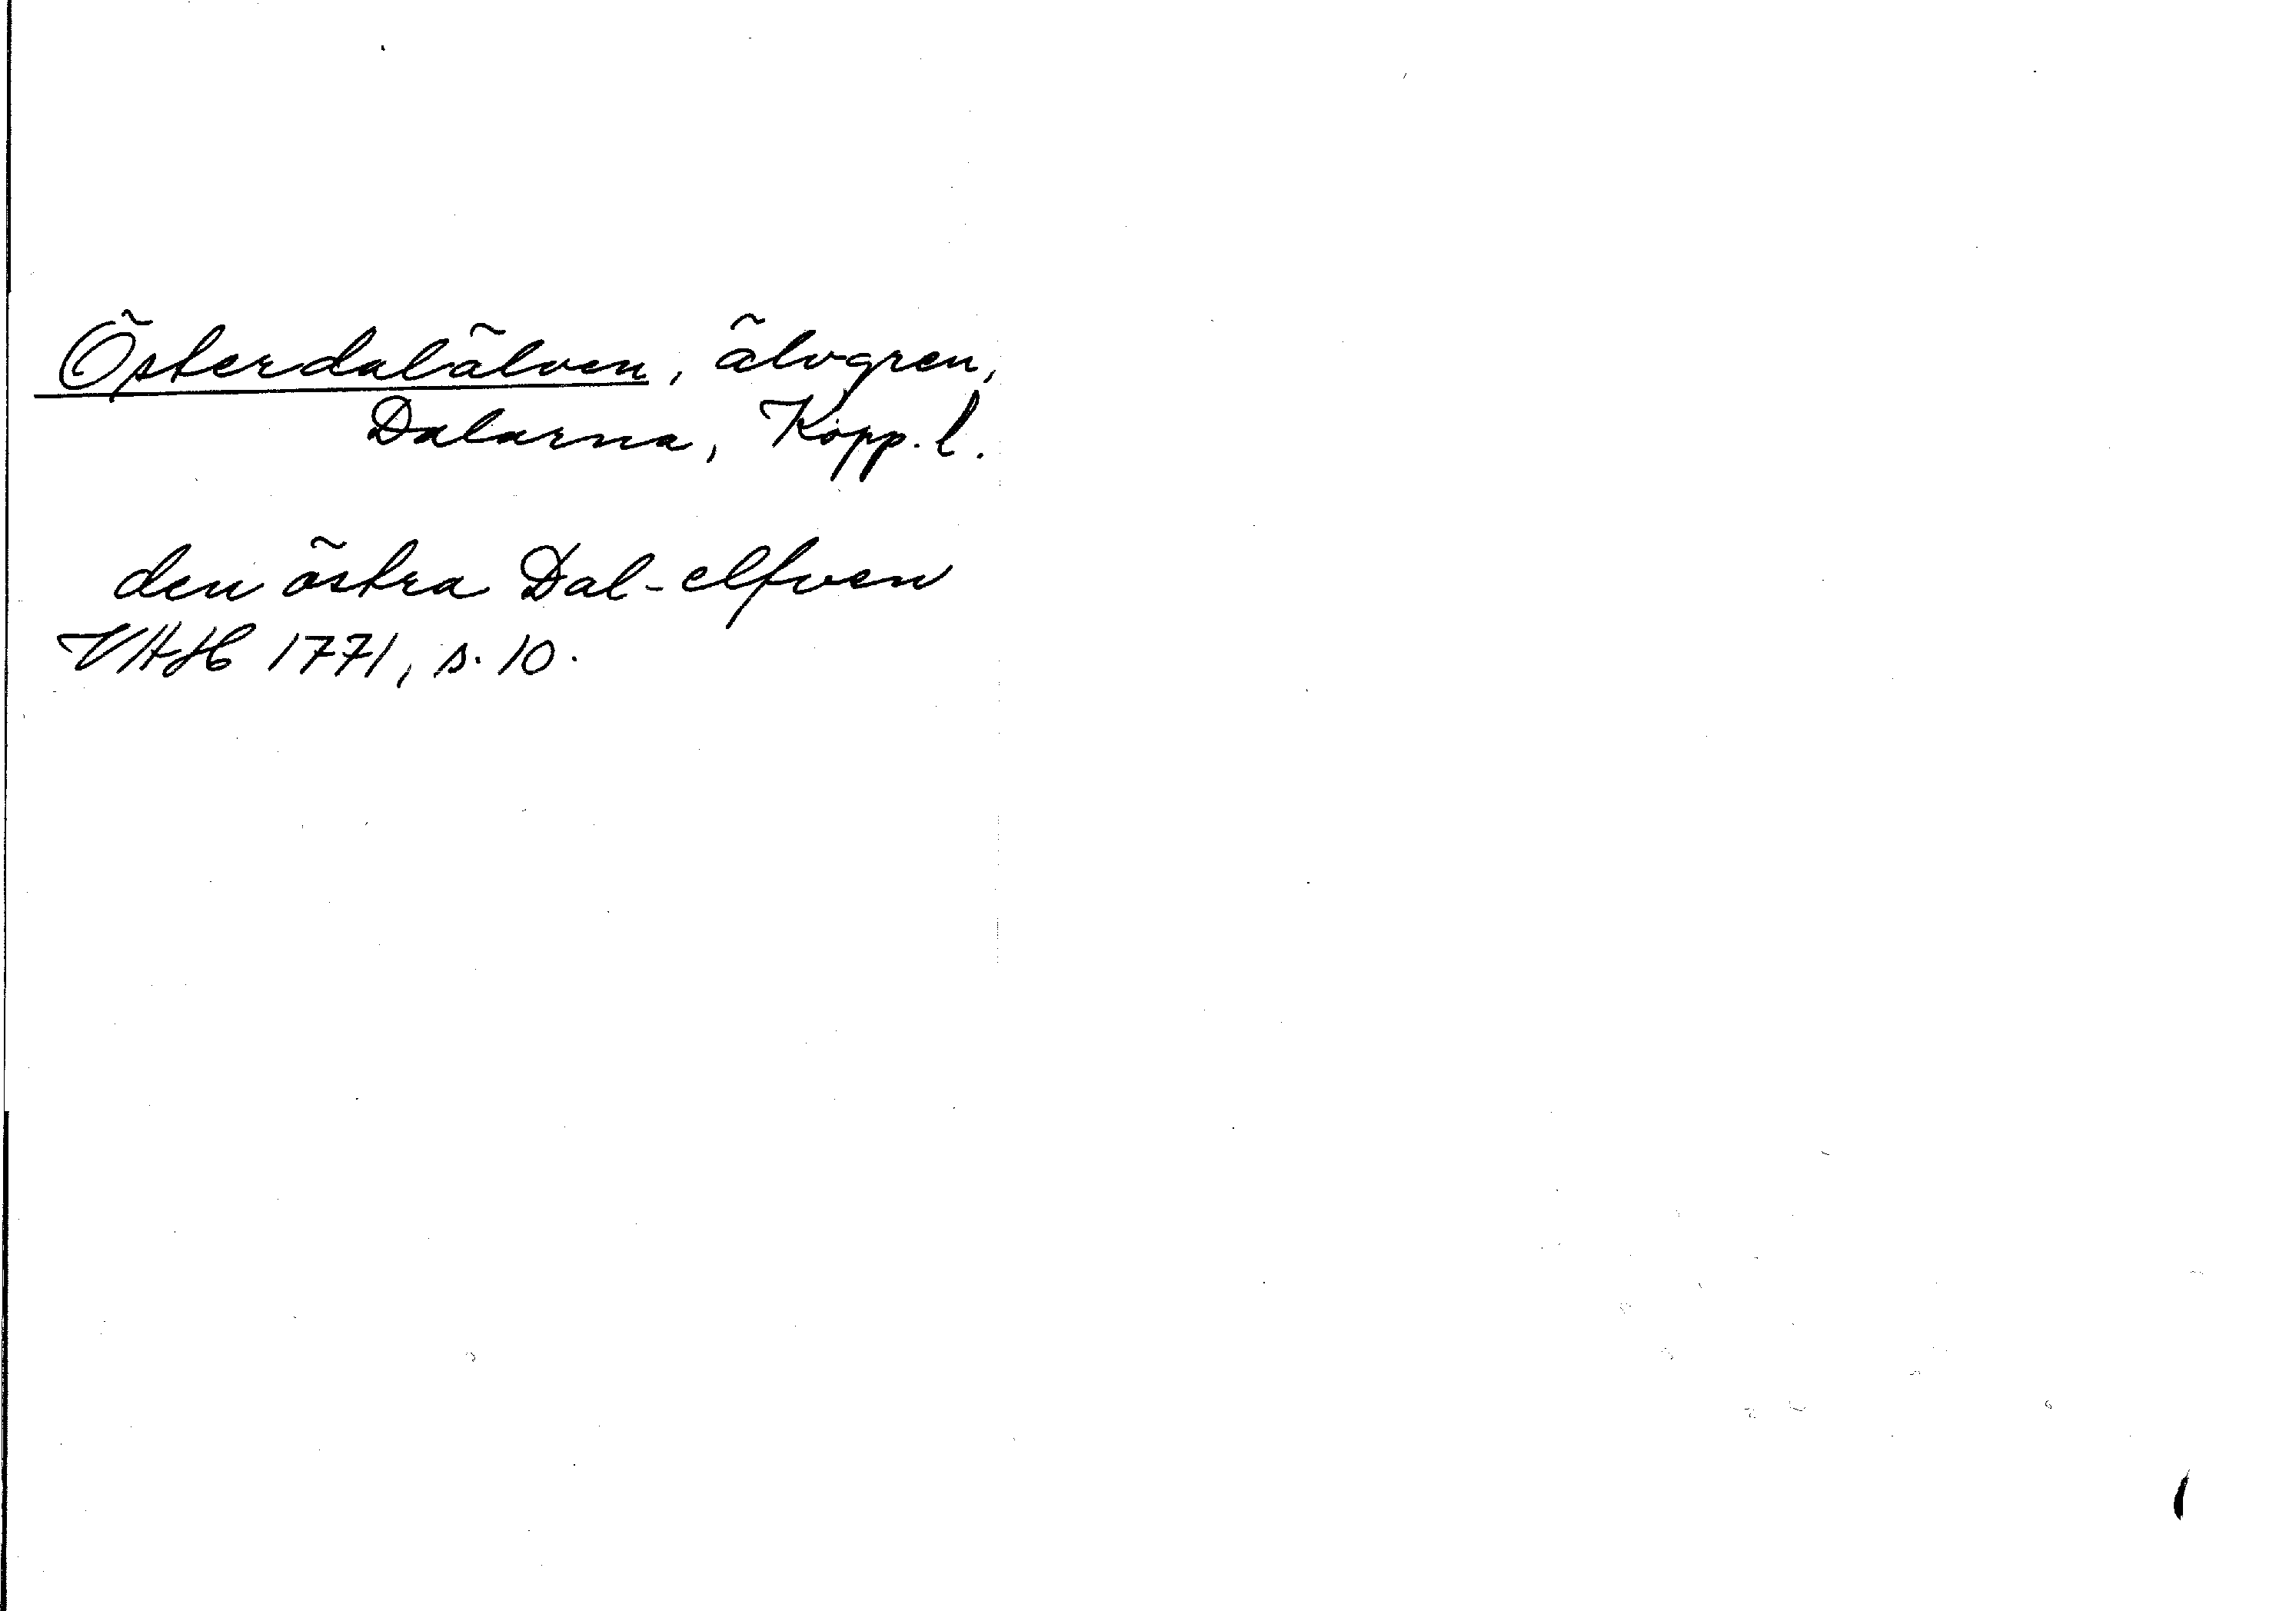 Österdalälven, älvgren,
Dalarna, Kopp. l.
den östra Dal-elfven
VAH 1771, s. 10.